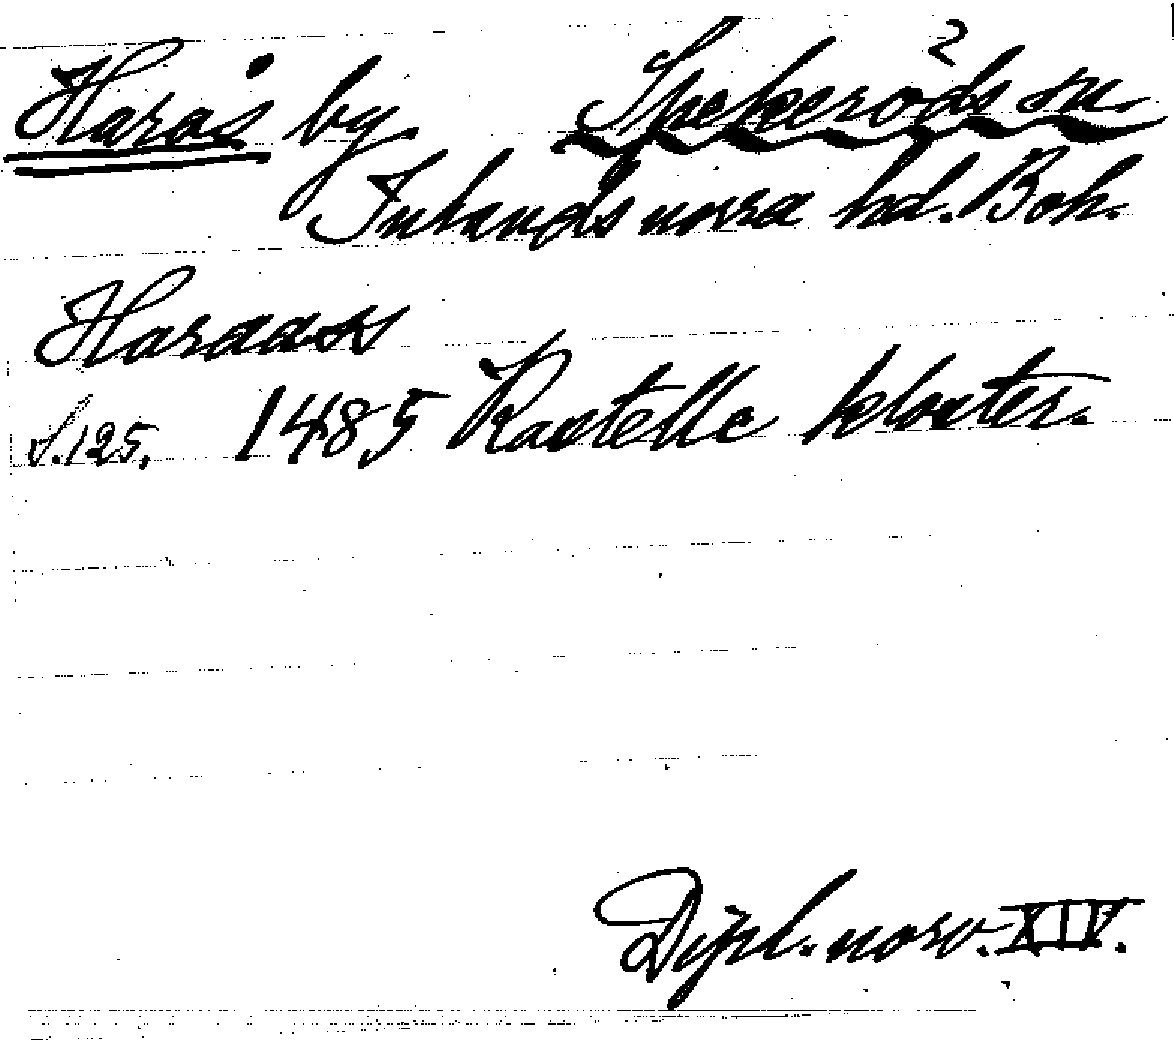 Harås by Spekeröds sn 2
Inlands norra hd. Boh.
Haraass
S.125. 1485 Kastelle kloster.
Dipl. norv. XIV.